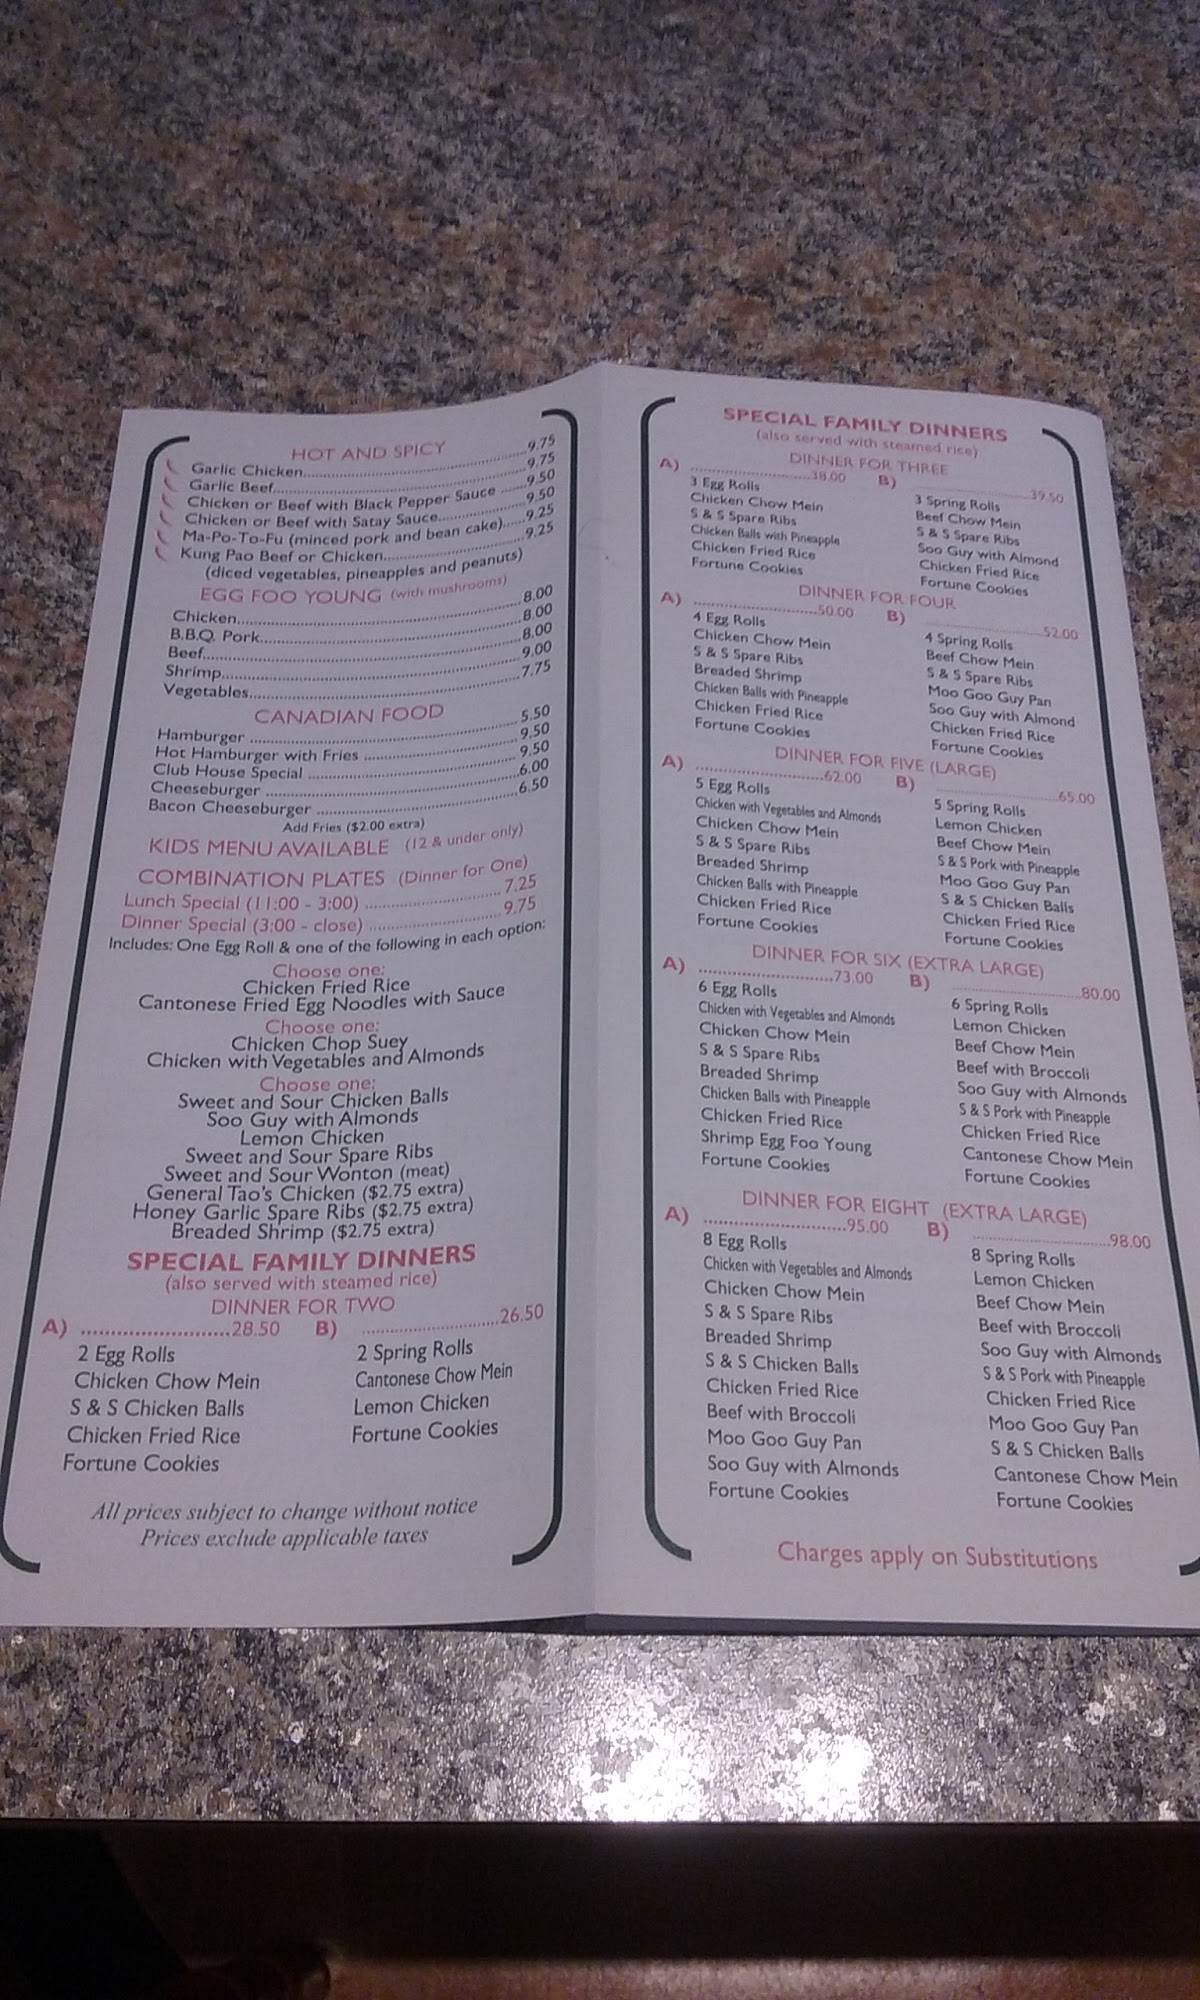 HOT AND SPICY
Garlic Chicken..........9.75
Garlic Beef..........9.75
Chicken or Beef with Black Pepper Sauce ......9.50
Chicken or Beef with Satay Sauce..........9.50
Ma-Po-To-Fu (minced pork and bean cake)......9.25
Kung Pao Beef or Chicken..........9.25
(diced vegetables, pineapples and peanuts)
EGG FOO YOUNG (with mushrooms)
Chicken..........8.00
B.B.Q. Pork..........8.00
Beef..........8.00
Shrimp..........9.00
Vegetables..........7.75
CANADIAN FOOD
Hamburger ..........5.50
Hot Hamburger with Fries ..........9.50
Club House Special ..........9.50
Cheeseburger ..........6.00
Bacon Cheeseburger ..........6.50
Add Fries ($2.00 extra)
KIDS MENU AVAILABLE (12 & under only)
COMBINATION PLATES (Dinner for One)
Lunch Special (11:00 - 3:00) .......... 7.25
Dinner Special (3:00 - close) .......... 9.75
Includes: One Egg Roll & one of the following in each option:
Choose one:
Chicken Fried Rice
Cantonese Fried Egg Noodles with Sauce
Choose one:
Chicken Chop Suey
Chicken with Vegetables and Almonds
Choose one:
Sweet and Sour Chicken Balls
Soo Guy with Almonds
Lemon Chicken
Sweet and Sour Spare Ribs
Sweet and Sour Wonton (meat)
General Tao's Chicken ($2.75 extra)
Honey Garlic Spare Ribs ($2.75 extra)
Breaded Shrimp ($2.75 extra)
SPECIAL FAMILY DINNERS
(also served with steamed rice)
DINNER FOR TWO
A) ..........28.50
2 Egg Rolls
Chicken Chow Mein
S & S Chicken Balls
Chicken Fried Rice
Fortune Cookies
B) ..........26.50
2 Spring Rolls
Cantonese Chow Mein
Lemon Chicken
Fortune Cookies
All prices subject to change without notice
Prices exclude applicable taxes
SPECIAL FAMILY DINNERS
(also served with steamed rice)
DINNER FOR THREE
A) ..........38.00
3 Egg Rolls
Chicken Chow Mein
S & S Spare Ribs
Chicken Balls with Pineapple
Chicken Fried Rice
Fortune Cookies
B) ..........39.50
3 Spring Rolls
Beef Chow Mein
S & S Spare Ribs
Soo Guy with Almond
Chicken Fried Rice
Fortune Cookies
DINNER FOR FOUR
A) ..........50.00
4 Egg Rolls
Chicken Chow Mein
S & S Spare Ribs
Breaded Shrimp
Chicken Balls with Pineapple
Chicken Fried Rice
Fortune Cookies
B) ..........52.00
4 Spring Rolls
Beef Chow Mein
S & S Spare Ribs
Moo Goo Guy Pan
Soo Guy with Almond
Chicken Fried Rice
Fortune Cookies
DINNER FOR FIVE (LARGE)
A) ..........62.00
5 Egg Rolls
Chicken with Vegetables and Almonds
Chicken Chow Mein
S & S Spare Ribs
Breaded Shrimp
Chicken Balls with Pineapple
Chicken Fried Rice
Fortune Cookies
B) ..........65.00
5 Spring Rolls
Lemon Chicken
Beef Chow Mein
S & S Pork with Pineapple
Moo Goo Guy Pan
S & S Chicken Balls
Chicken Fried Rice
Fortune Cookies
DINNER FOR SIX (EXTRA LARGE)
A) ..........73.00
6 Egg Rolls
Chicken with Vegetables and Almonds
Chicken Chow Mein
S & S Spare Ribs
Breaded Shrimp
Chicken Balls with Pineapple
Chicken Fried Rice
Shrimp Egg Foo Young
Fortune Cookies
B) ..........80.00
6 Spring Rolls
Lemon Chicken
Beef Chow Mein
Beef with Broccoli
Soo Guy with Almonds
S & S Pork with Pineapple
Chicken Fried Rice
Cantonese Chow Mein
Fortune Cookies
DINNER FOR EIGHT (EXTRA LARGE)
A) ..........95.00
8 Egg Rolls
Chicken with Vegetables and Almonds
Chicken Chow Mein
S & S Spare Ribs
Breaded Shrimp
S & S Chicken Balls
Chicken Fried Rice
Beef with Broccoli
Moo Goo Guy Pan
Soo Guy with Almonds
Fortune Cookies
B) ..........98.00
8 Spring Rolls
Lemon Chicken
Beef Chow Mein
Beef with Broccoli
Soo Guy with Almonds
S & S Pork with Pineapple
Chicken Fried Rice
Moo Goo Guy Pan
S & S Chicken Balls
Cantonese Chow Mein
Fortune Cookies
Charges apply on Substitutions